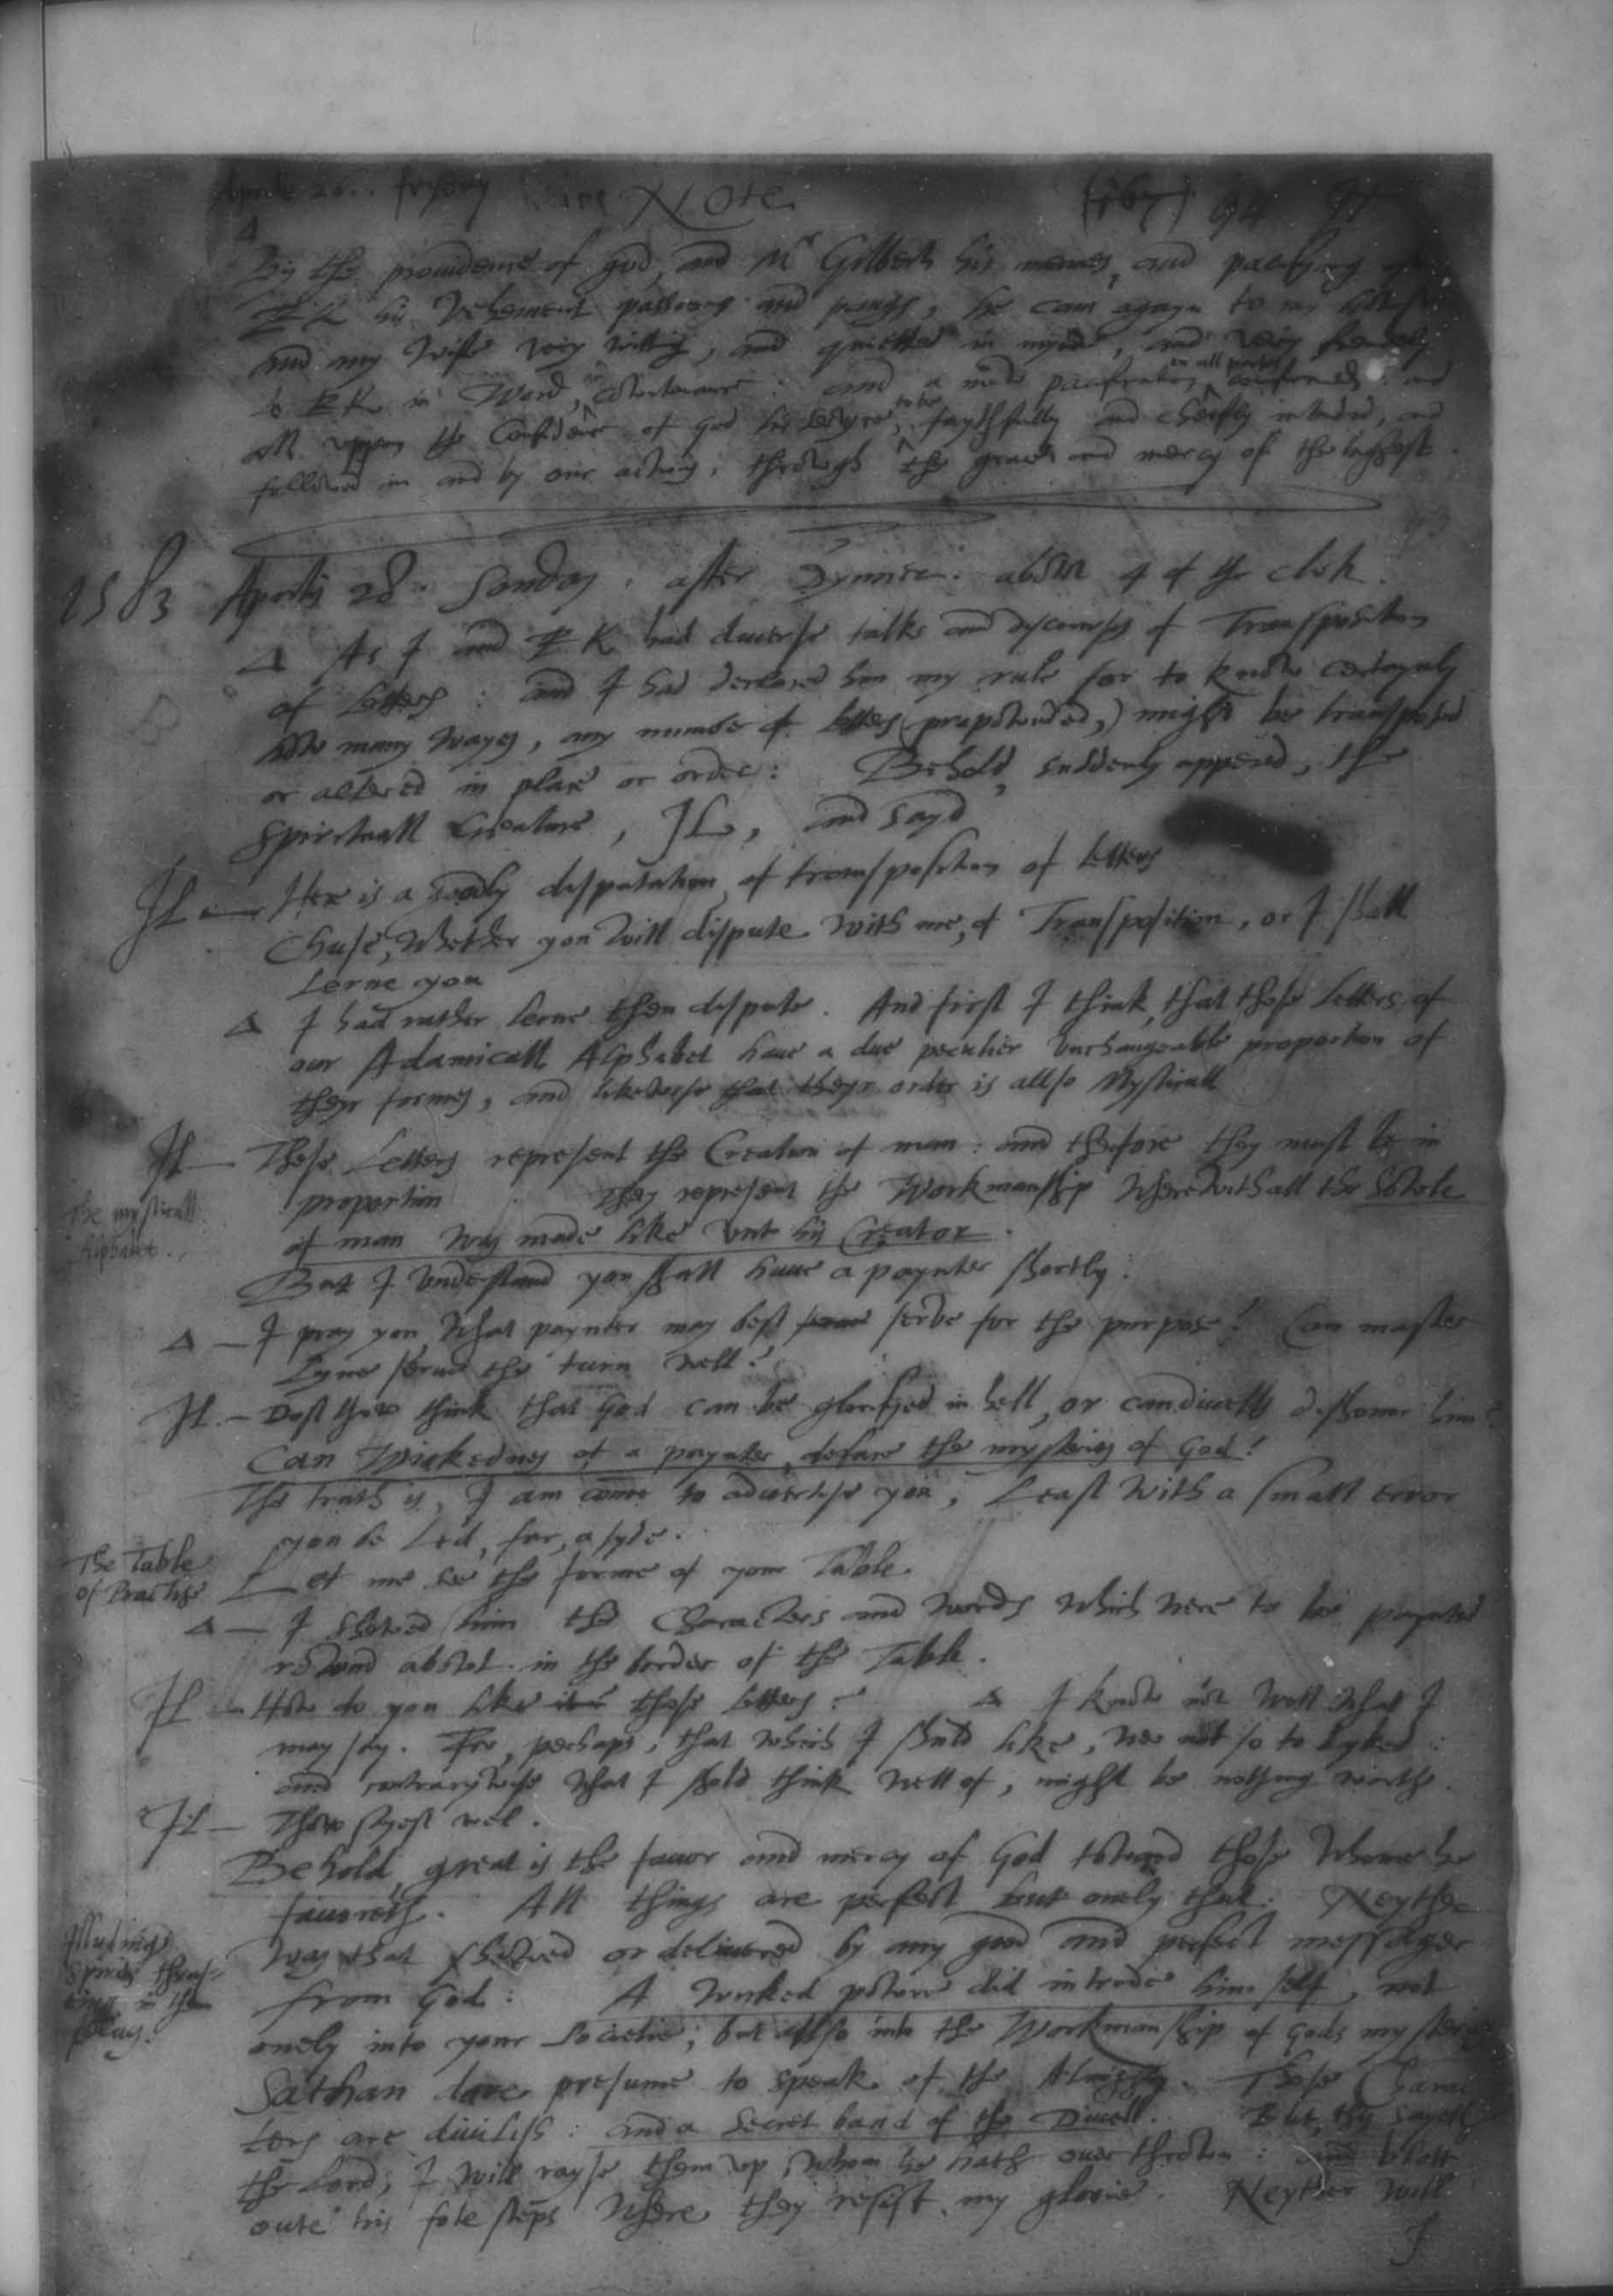 Aprilis 26. fryday Note. (167) 94
Δ
By the providence of god, and Mr Gilberts his meanes, and pacifying of
EK his vehement passions and pangs, he cam agayn to my howse
and my wife very willing, and quieted in mynde, and very frendely
to EK in Word, and cowntenance: and a new pacification on all partes confirmed: and
all uppon the Confidence of god his servyce, to be faythfully and cheifly intended, and
followed in and by our actions, through the grace and mercy of the highest.
1583 Aprilis 28. Sonday. after Dynner. abowt 4 of the clok.
Δ As I and EK had diverse talks and discourses of Transposition
of letters: and I had declared him my rule for to know certaynly
how many wayes, any number of letters (propownded,) might be transposed
or altered in place or order: Behold, suddenly appered, the
Spirituall Creature, IL, and sayd
IL — Here is a goodly disputation, of transposition of letters
Chuse, Whether you will dispute with me, of Transposition, or I shall
Lerne you
Δ I had rather lerne then dispute. And first I think, that those letters of
our Adamicall Alphabet have a due peculier unchangeable proportion of
theyr formes, and likewise that theyr order is allso Mysticall
IL — These Letters represent the Creation of man: and therfore they must be in
proportion They represent the Workmanship Wherewithall the sowle
The mysticall
Alphabet.
of man was made like unto his Creator.
But I understand you shall have a paynter shortly:
Δ — I pray you, What paynter may best serve serve for the purpose? Can master
Lyne serve the turn well?
IL — Dost thow think that God can be glorifyed in hell, or can divells dishonor him?
Can Wickednes of a paynter, deface the mysteries of God?
The truth is, I am come to advertise you, Least with a small error
you be Led, far, asyde.
The Table
of Practise
Let me see the forme of your Table.
Δ — I shewed him the Characters and words which were to be paynted
rownd abowt in the border of the Table.
IL — How do you like those letters? Δ I know not well what I
may say. For, perhaps, that which I shuld like, wer not so to be lyked:
and contrarywise what I shold think well of, might be nothing worth.
IL — Thow sayest wel.
Behold, great is the favor and mercy of God toward those Whome he
favoreth. All things are perfect but onely that: Neyther
was that shewed or delivered by any good and perfect messager
Illuding
spirits thrus-
ting in them
selves.
from God: A wicked powre did intrude him self, not
onely into your societie, but allso into the Workmanship of Gods mysteries
Sathan dare presume to speak of the Almighty. Those Charac
ters are divilish: and a secret band of the Divell. But, this sayeth
the Lord, I will rayse them up, whom he hath overthrown: and blott
oute his fote steps Where they resist my glorie. Neyther will